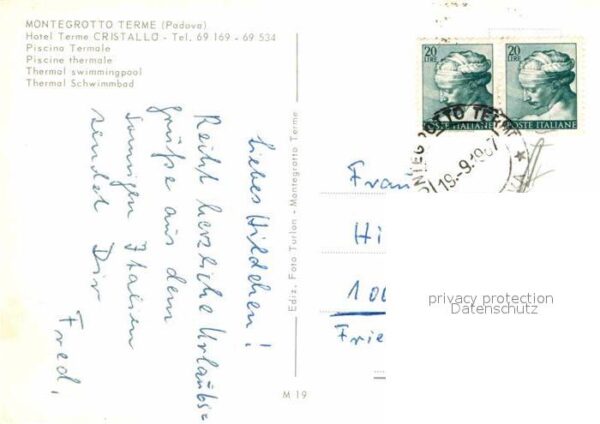 MONTEGROTTO TERME (Padova)
Hotel Terme CRISTALLO - Tel. 69 169 - 69 534
Piscina Termale
Piscine thermale
Thermal swimmingpool
Thermal Schwimmbad
liebes Hildchen!
Recht herzliche Urlaubs=
grüße aus dem
sonnigen Italien
sendet Dir
Fred.
Ediz. Foto Turlon - Montegrotto Terme
M 19
20
LIRE
POSTE ITALIANE
20
LIRE
POSTE ITALIANE
MONTEGROTTO TERME
19.-9.1967
Frau
Hi
100
Frie
privacy protection
Datenschutz